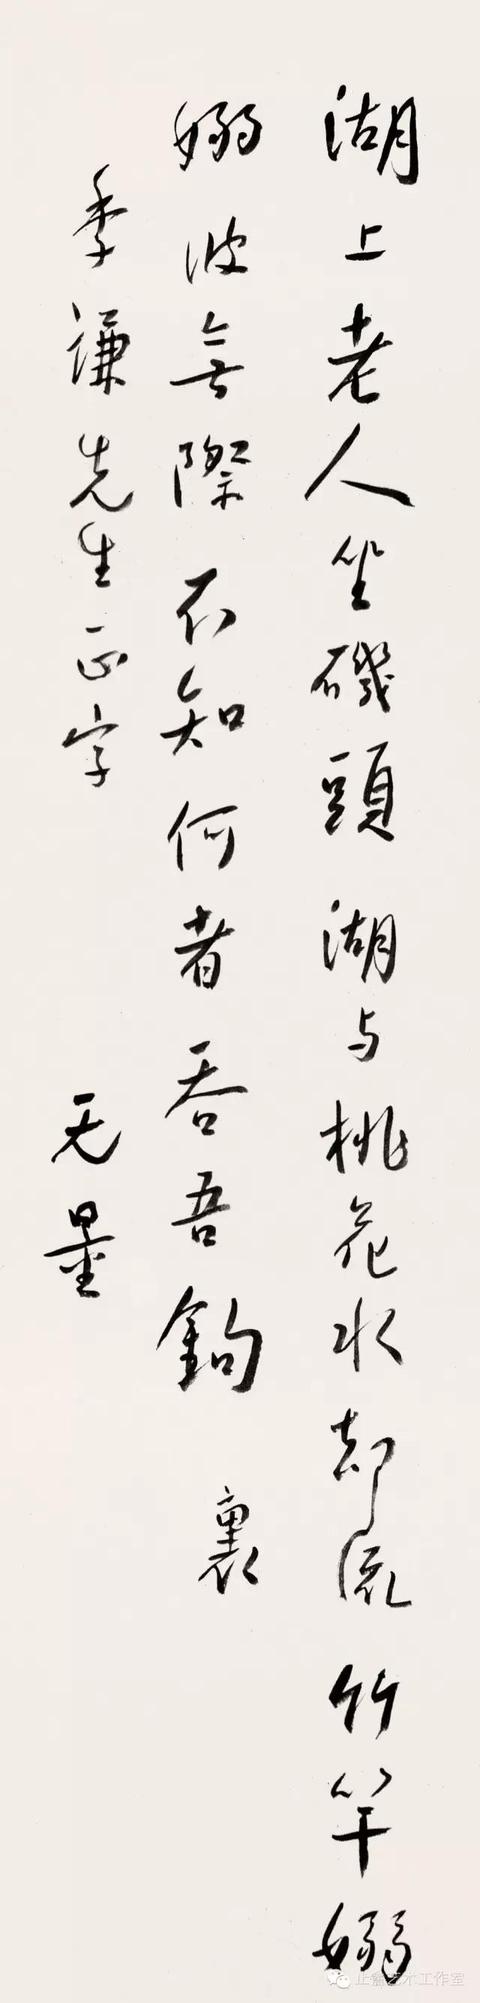 湖上老人坐磯頭湖与桃花水却流竹竿嫋
嫋波無際不知何者吞吾鉤 裏
季謙先生正字 无量
艺术工作室